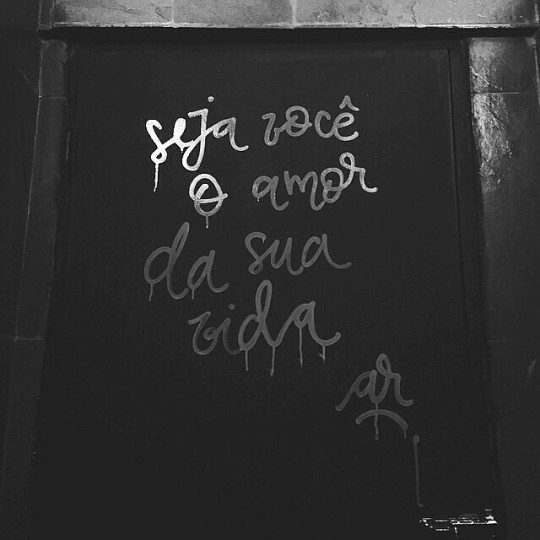 seja você
o amor
da sua
vida
ar